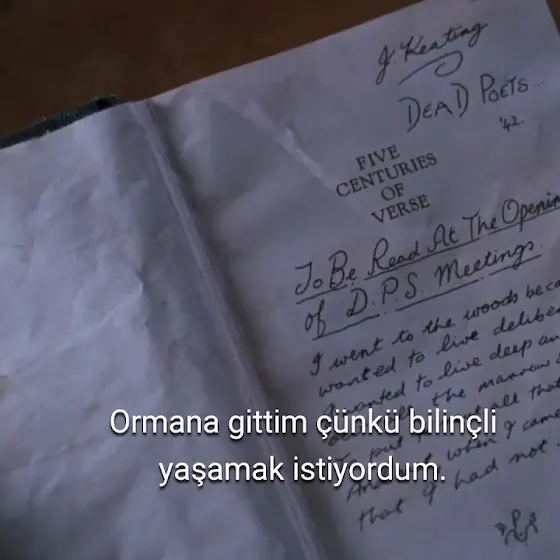 J. Keating
DEAD POETS...
'42.
FIVE
CENTURIES
OF
VERSE
To Be Read At The Openin
of D.P.S. Meetings.
I went to the woods beca
wanted to live deliber
I wanted to live deep an
the marrow
put all that
And when I came
that I had not
Ormana gittim çünkü bilinçli
yaşamak istiyordum.